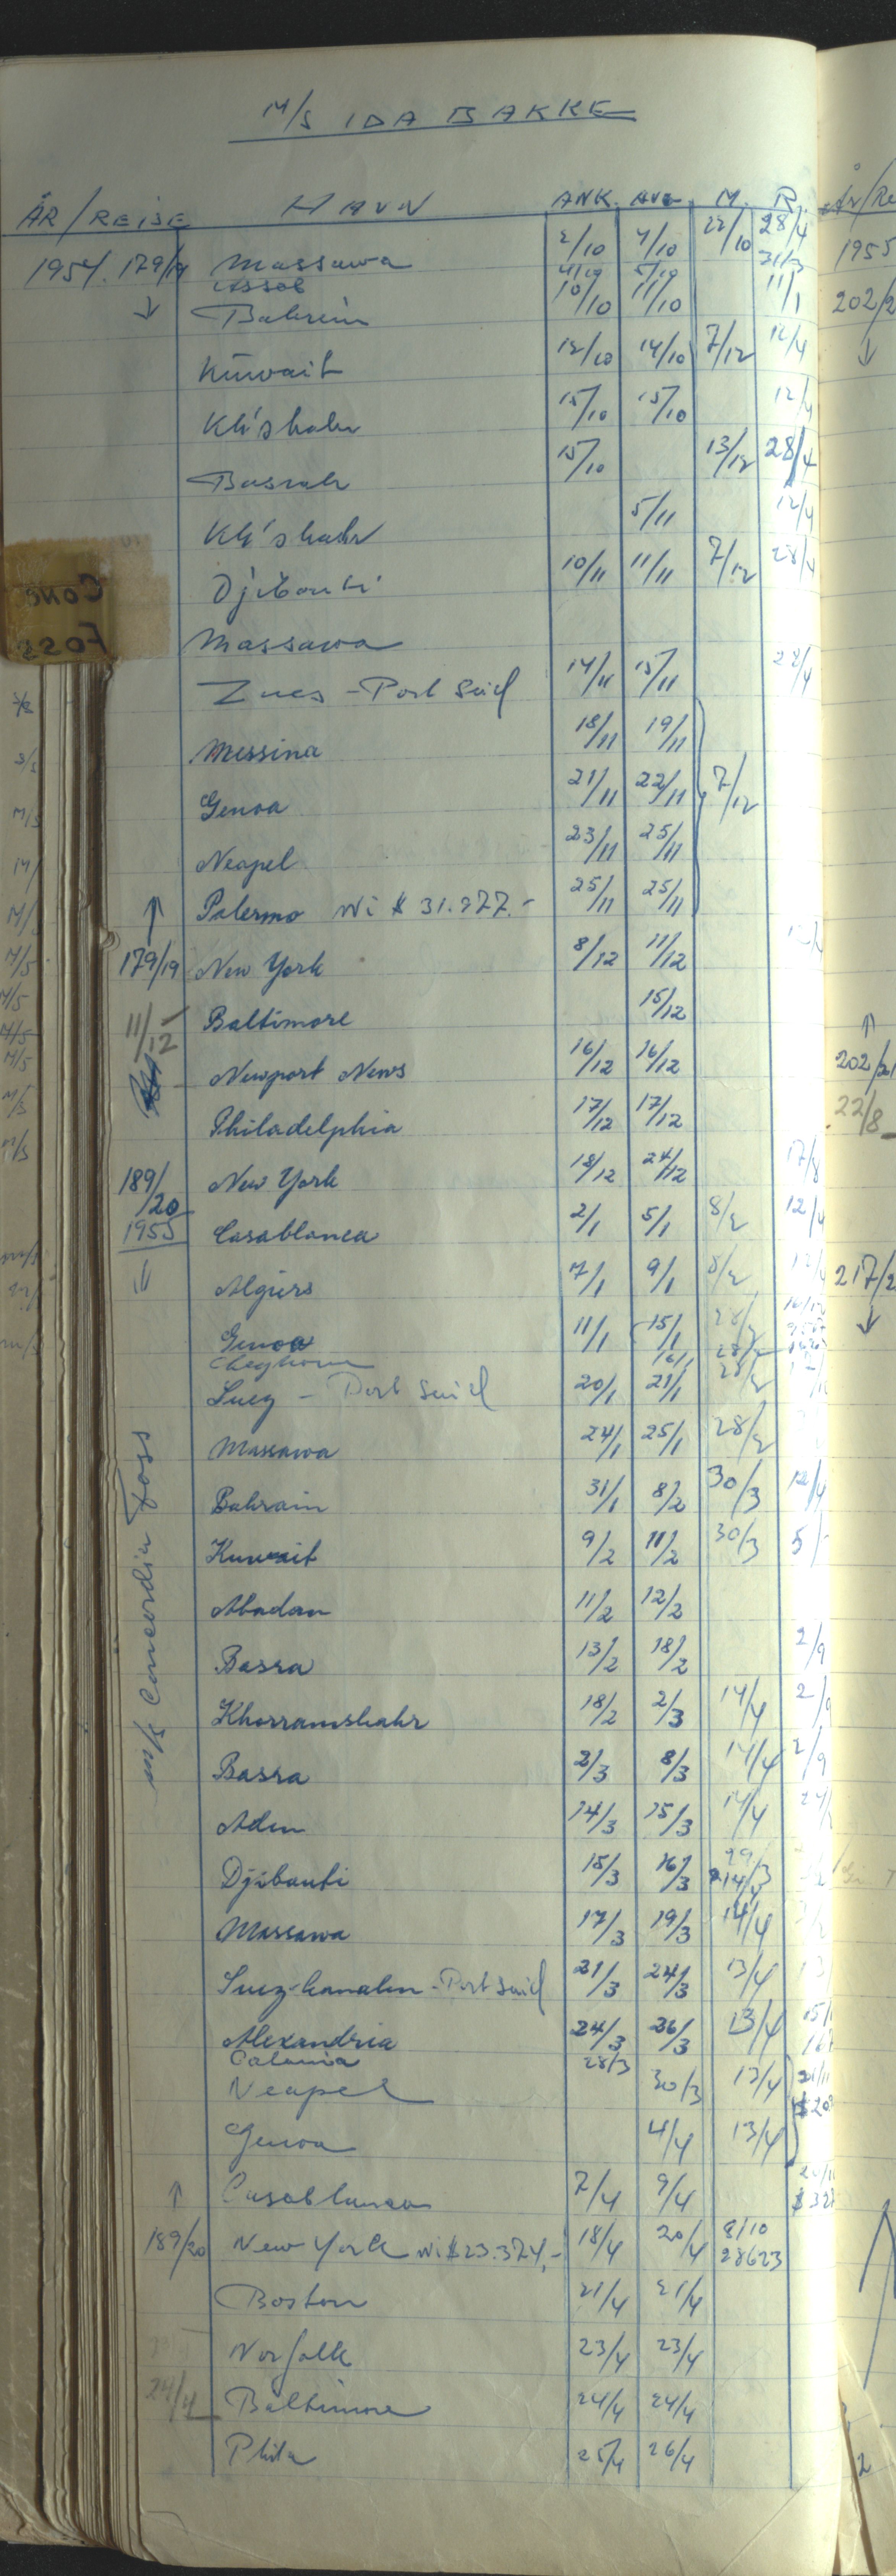 M/S IDA BAKKE
ÅR/REISE HAVN ANK. AVG. M. R.
1954. 179/19 Massawa 2/10 4/10 22/10 28/4
Assab 4/10 5/10 31/3
↓ Bahrein 10/10 11/10 11/1
Kuwait 12/10 14/10 7/12 12/4
Kh'shahr 15/10 15/10 12/4
Basrah 15/10 13/12 28/4
Kh'shahr 5/11 12/4
Djibouti 10/11 11/11 7/12 28/4
Massawa
Zues - Port Said 14/11 15/11 22/4
Messina 18/11 19/11
Genoa 21/11 22/11 7/12
Neapel 23/11 25/11
↑ Palermo Wi $ 31.977.- 25/11 25/11
179/19 New York 8/12 11/12
11/12 Baltimore 15/12
Newport News 16/12 16/12
Philadelphia 17/12 17/12
189/20 New York 18/12 24/12 17/8
1955 Casablanca 2/1 5/1 8/2 12/4
↓ Algiers 7/1 9/1 8/2 12/4
Genoa 11/1 15/1 28/2
Leghorn 16/1 28/2
Suez - Port Said 20/1 21/1 28/2
Massawa 24/1 25/1 28/2
Bahrain 31/1 8/2 30/3 12/4
Kuwait 9/2 11/2 30/3 5/
Abadan 11/2 12/2
Basra 13/2 18/2 2/9
Khorramshahr 18/2 2/3 14/4 2/9
Basra 2/3 8/3 14/4 2/9
Aden 14/3 15/3 14/4
Djibouti 15/3 16/3 14/4
Massawa 17/3 19/3 14/4
Suez-kanalen - Port Said 21/3 24/3 13/4
Alexandria 24/3 26/3 13/4
Catania 28/3
Neapel 30/3 13/4
Genoa 4/4 13/4
↑ Casablanca 7/4 9/4
189/20 New York Wi $23.374,- 18/4 20/4 8/10
28623
Boston 21/4 21/4
Norfolk 23/4 23/4
24/4 Baltimore 24/4 24/4
Phila 25/4 26/4
m/s Concordia Foss
År/Re
1955
202/2
↓
↑
202/21
22/8
217/2
↓